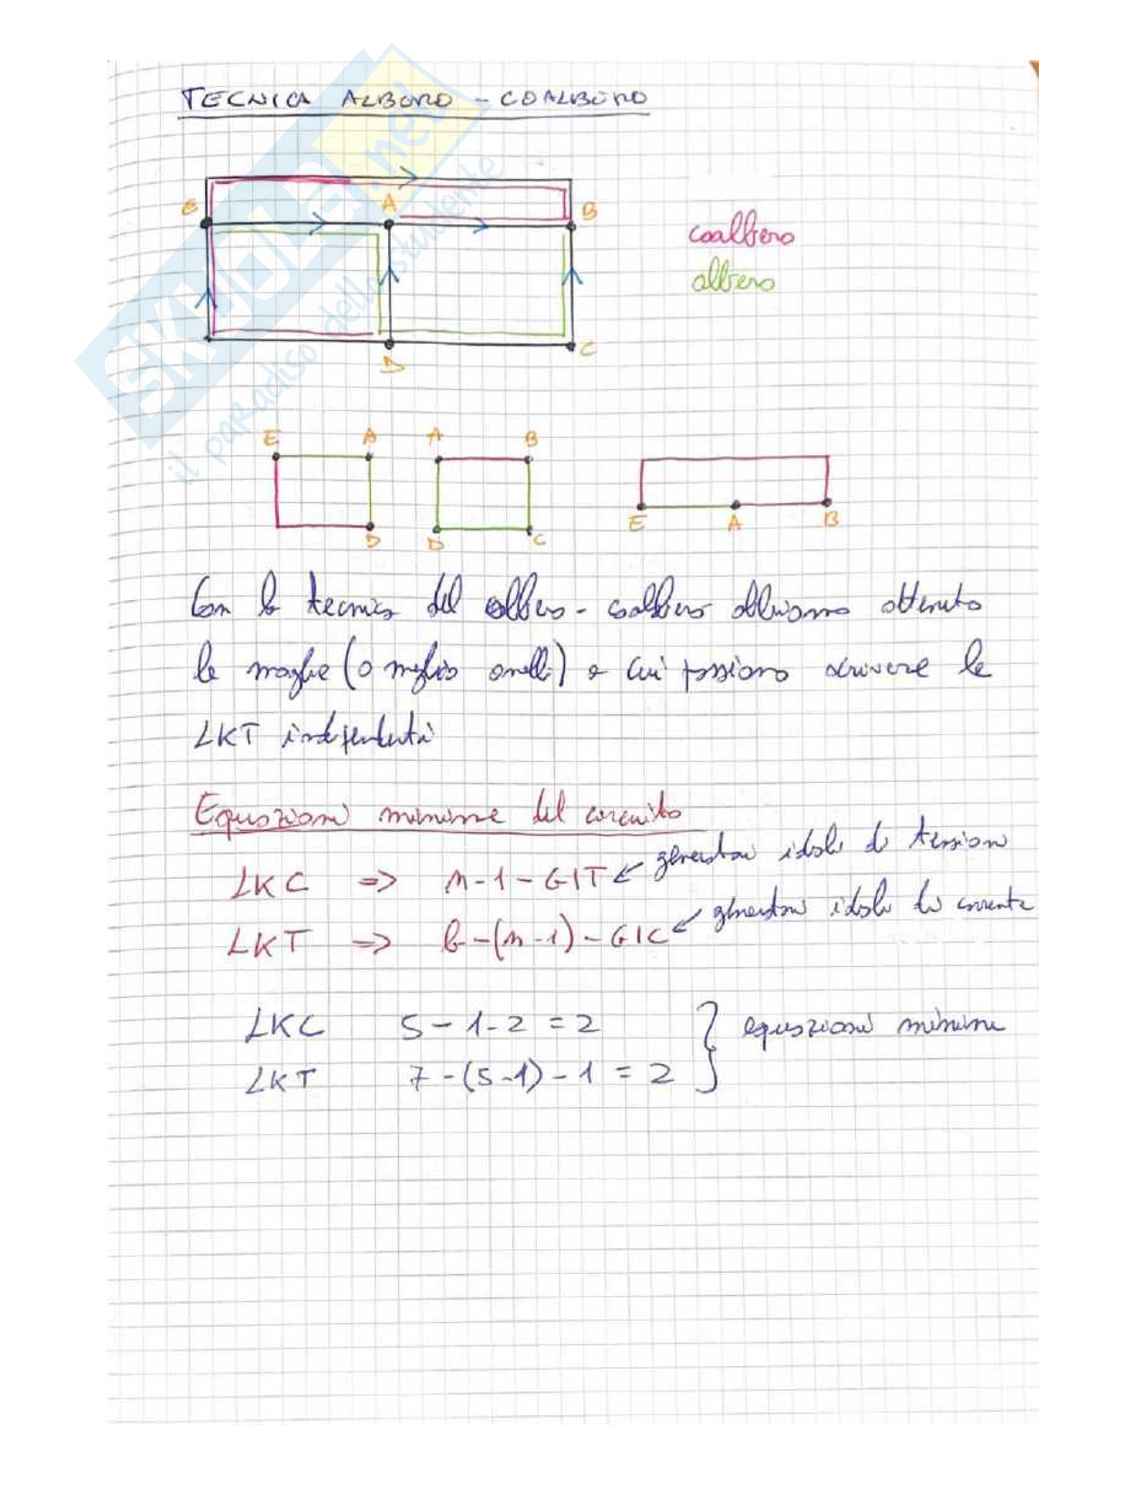 TECNICA ALBERO - COALBERO
E A B
D C
coalbero
albero
E A A B
D D C E A B
Con la tecnica del albero - coalbero abbiamo ottenuto
le maglie (o meglio anelli) a cui possiamo scrivere le
LKT indipendenti
Equazioni minime del circuito
LKC => n-1-GIT ← generatori ideali di tensione
LKT => b-(n-1)-GIC ← generatori ideali di corrente
LKC 5-1-2 = 2
LKT 7-(5-1)-1 = 2 } equazioni minime
SKUOLA.net
il paradiso dello studente